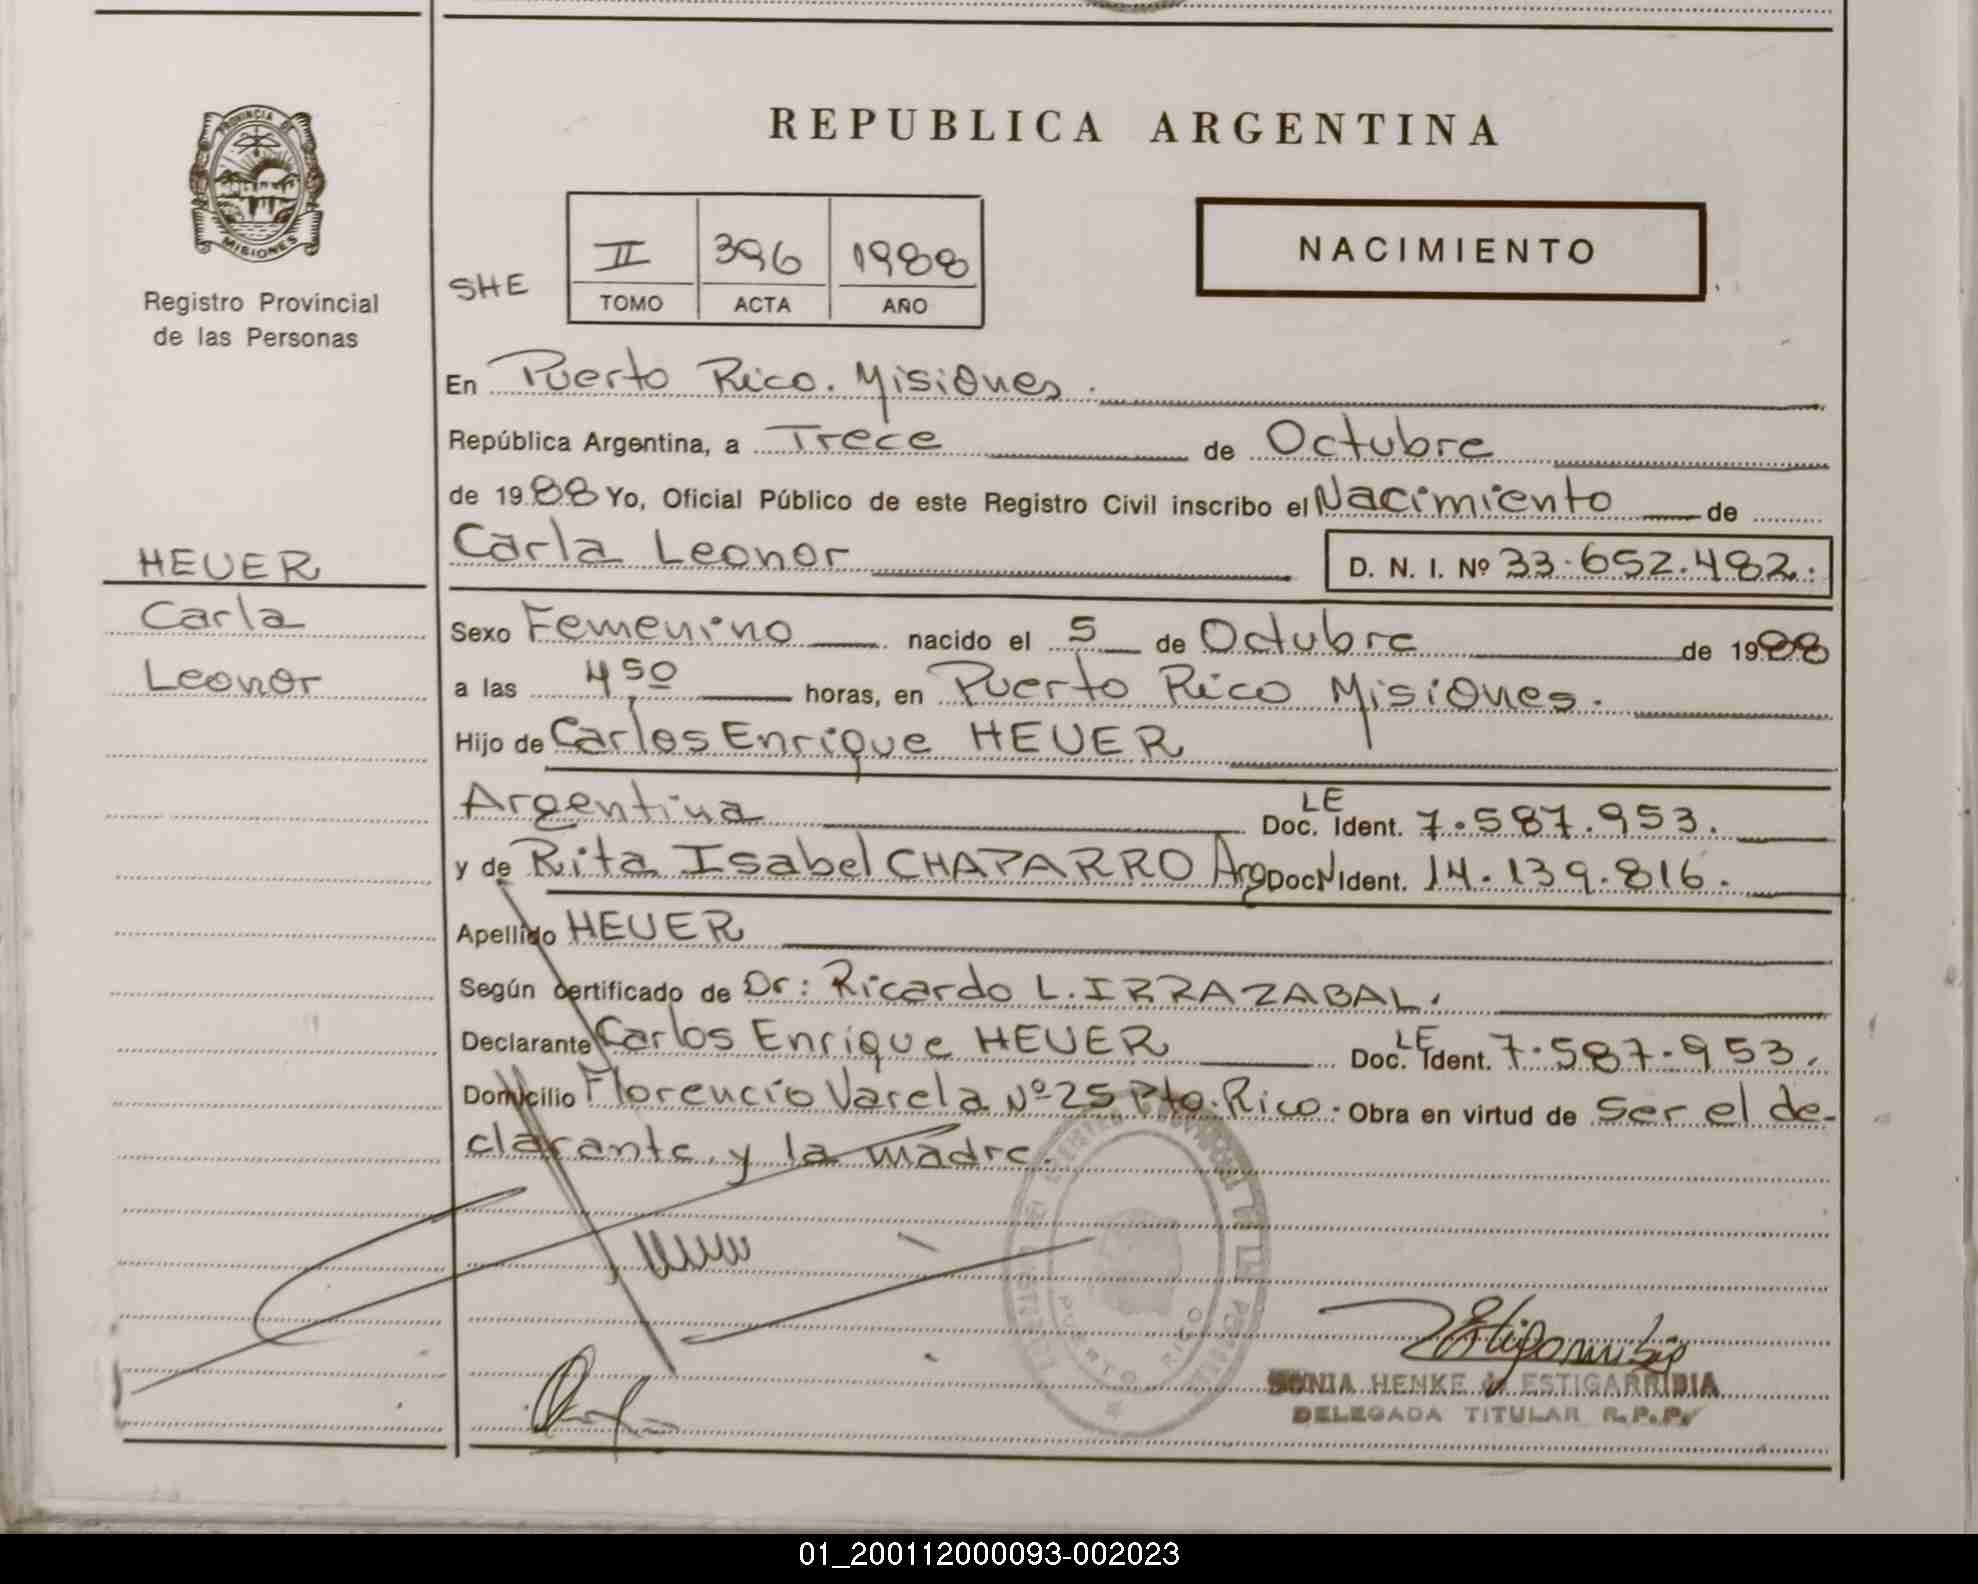 REPUBLICA ARGENTINA
PROVINCIA DE
MISIONES
Registro Provincial
de las Personas
SHE
II 396 1988
TOMO ACTA AÑO
NACIMIENTO
En Puerto Rico. Misiones.
República Argentina, a Trece de Octubre
de 1988 Yo, Oficial Público de este Registro Civil inscribo el Nacimiento de
Carla Leonor D. N. I. Nº 33.652.482.
HEUER
Carla
Leonor
Sexo Femenino nacido el 5 de Octubre de 1988
a las 4,50 horas, en Puerto Rico Misiones.
Hijo de Carlos Enrique HEUER
Argentina Doc. LE Ident. 7.587.953.
y de Rita Isabel CHAPARRO Arg Doc N Ident. 14.139.816.
Apellido HEUER
Según certificado de Dr: Ricardo L. IRRAZABAL.
Declarante Carlos Enrique HEUER Doc. LE Ident. 7.587.953.
Domicilio Florencio Varela Nº 25 Pto. Rico. Obra en virtud de ser el de-
clarante y la madre.
PUERTO RICO
SONIA HENKE de ESTIGARRIBIA
DELEGADA TITULAR R.P.P.
01_200112000093-002023